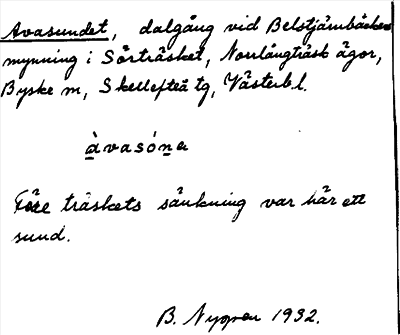 Avasundet, dalgång vid Belstjärnbäckens
mynning i Sörträsket, Norrlångträsk ägor,
Byske m, Skellefteå tg, Västerb.l.
àvasóna
Före träskets sänkning var här ett
sund.
B. Nygren 1932.